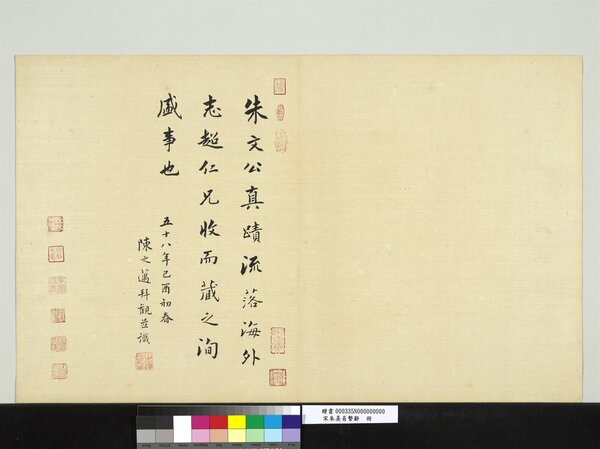 朱文公真蹟流落海外
志超仁兄收而藏之洵
盛事也
五十八年己酉初春
陳之邁拜觀並識
贈書000335N000000000
宋朱熹易繫辭 冊